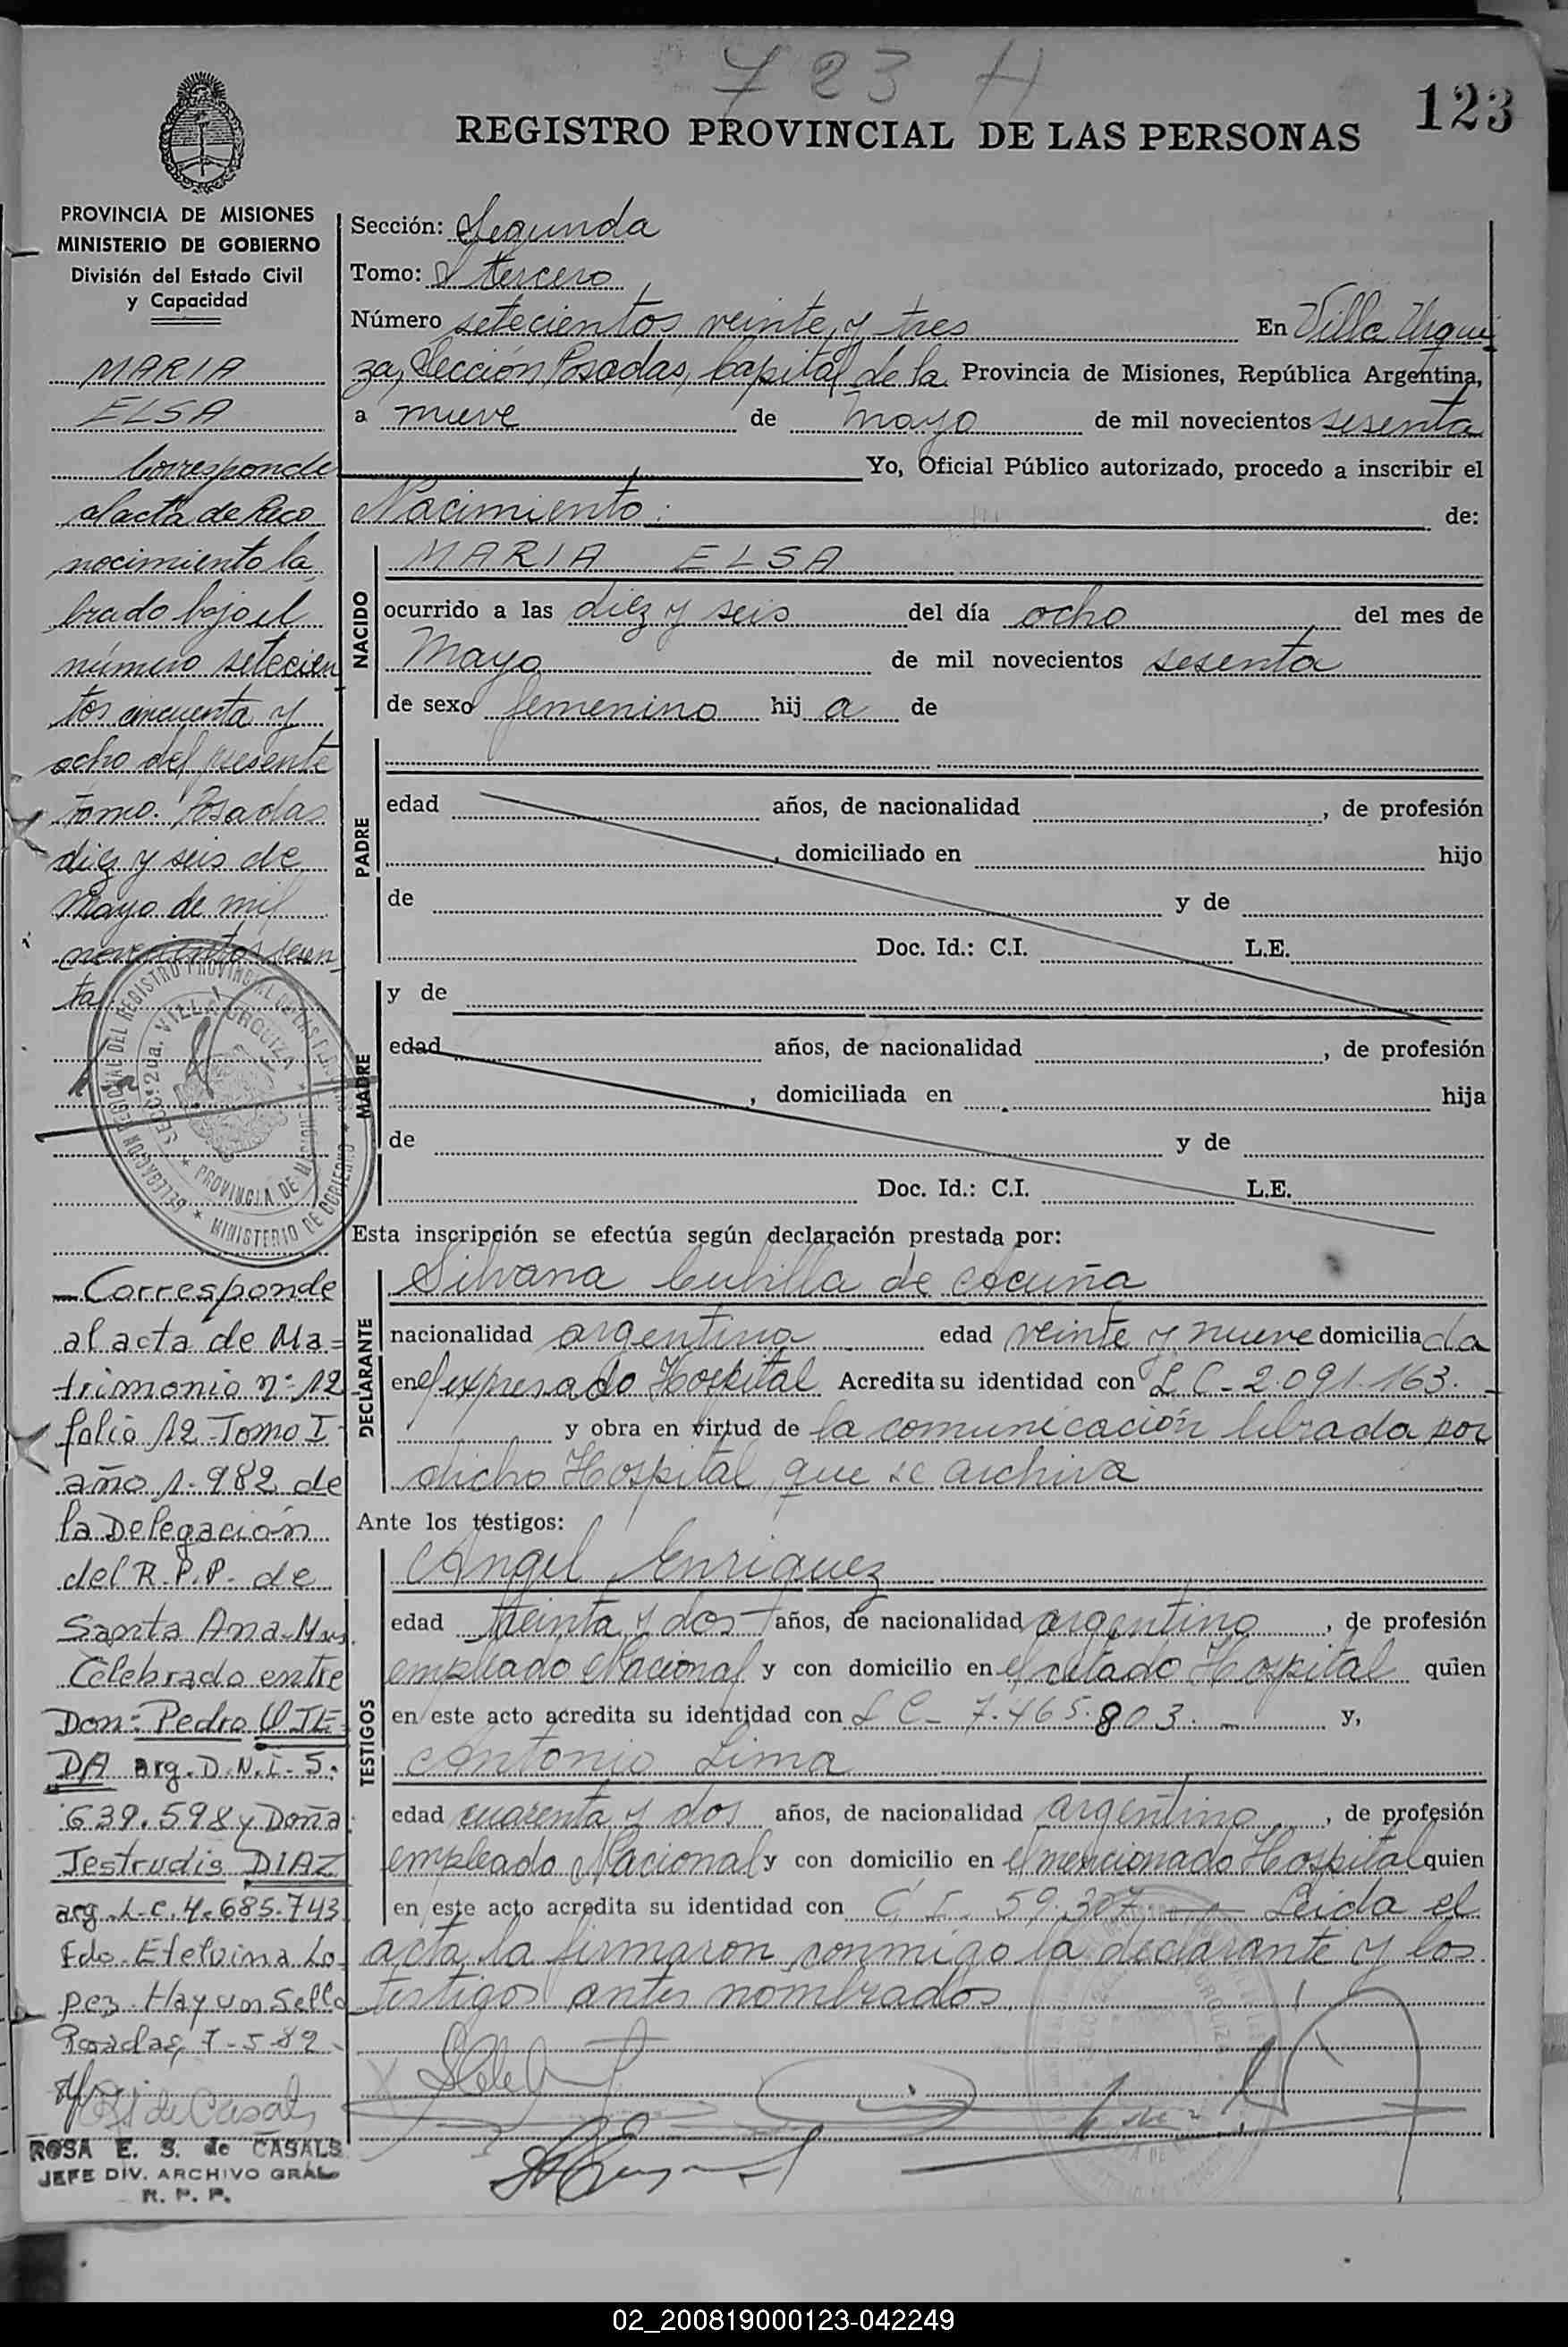 723 H
123
REGISTRO PROVINCIAL DE LAS PERSONAS
PROVINCIA DE MISIONES
MINISTERIO DE GOBIERNO
División del Estado Civil
y Capacidad
MARIA
ELSA
Corresponde
al acta de Reco
nocimiento la
brado bajo el
número setecien
tos cincuenta y
ocho del presente
tomo. Posadas
diez y seis de
Mayo de mil
novecientos sesen
ta.
DELEGACION REGIONAL DEL REGISTRO PROVINCIAL DE LAS PERSONAS
SECC. 2da. VILLA URQUIZA
PROVINCIA DE MISIONES
MINISTERIO DE GOBIERNO
Corresponde
al acta de Ma=
trimonio nº 12
folio 12 Tomo I
año 1.982 de
la Delegación
del R.P.P. de
Santa Ana-Mns.
Celebrado entre
Don: Pedro OJE
DA arg. D.N.I. 5.
639.598 y Doña
Jestrudis DIAZ
arg. L.C. 4.685.743
Fdo. Etelvina Lo
pez. Hay un sello
Posadas, 7-5-82
ROSA E. S. de CASALS
JEFE DIV. ARCHIVO GRAL
R. P. P.
Sección: Segunda
Tomo: tercero
Número setecientos veinte y tres En Villa Urqui
za, Sección Posadas, Capital de la Provincia de Misiones, República Argentina,
a nueve de mayo de mil novecientos sesenta
Yo, Oficial Público autorizado, procedo a inscribir el
Nacimiento: de:
NACIDO
MARIA ELSA
ocurrido a las diez y seis del día ocho del mes de
Mayo de mil novecientos sesenta
de sexo femenino hij a de
PADRE
edad años, de nacionalidad , de profesión
, domiciliado en hijo
de y de
Doc. Id.: C.I. L.E.
MADRE
y de
edad años, de nacionalidad , de profesión
, domiciliada en hija
de y de
Doc. Id.: C.I. L.E.
Esta inscripción se efectúa según declaración prestada por:
DECLARANTE
Silvana Cubilla de Acuña
nacionalidad argentina edad veinte y nueve domicilia da
en el expresado Hospital Acredita su identidad con L C - 2.091.163.
y obra en virtud de la comunicación librada por
dicho Hospital, que se archiva
Ante los testigos:
TESTIGOS
Angel Enriquez
edad treinta y dos años, de nacionalidad argentino, de profesión
empleado Nacional y con domicilio en el citado Hospital quien
en este acto acredita su identidad con L C - 7.465.803. y,
Antonio Lima
edad cuarenta y dos años, de nacionalidad argentino, de profesión
empleado Nacional y con domicilio en el mencionado Hospital quien
en este acto acredita su identidad con C. I. 59.307 Leida el
acta la firmaron conmigo la declarante y los
testigos antes nombrados
02_200819000123-042249